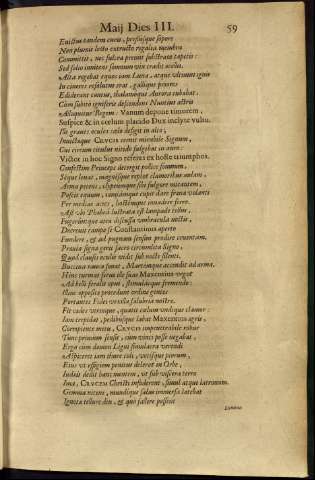 Maij Dies III. 59
Evictus tandem curis, pressusque sopore
Non plumis lecto extructo regalia membra
Committit, nec fulcra premit substrata tapetis:
Sed folio innitens somnum vix credit ocello.
Alta regebat equos iam Luna, atque ultimus ignis
In cineres resolutus erat, gallique propere
Ediderant cantus, thalamoque Aurora cubabat.
Cum subito igniferis descendens Nuntius astris
Alloquitur Regem. Vanum depone timorem,
Suspice & in cœlum placido Dux inclyte vultu.
Ille graves oculos cælo defigit in alto,
Invictæque CRVCIS cernit mirabile Signum,
Qui circum titulus nitido fulgebat in auro:
Victor in hoc Signo referes ex hoste triumphos.
Confestim Princeps decerpit pollice somnum,
Seque levat, magnisque replet clamoribus aulam:
Arma petens, clypeumque suis fulgere micantem,
Poscit equum, campisque cupit dare fræna volantis
Per medias acies, hostemque invadere ferro.
Ast ubi Phœbea lustrata est lampade tellus,
Fugeruntque atra discussa umbracula noctis,
Decernit campo se Constantinus aperto
Fundere, & ad pugnam sensim prodire cruentam.
Prævia signa geris sacro circumlita Signo,
Quod clausis oculis vidit sub nocte silenti.
Buccina rauca sonat, Martemque accendit ad arma.
Hinc turmas ferus ille suas MAXENTIVS urget
Ad belli feralis opus, stimulasque fremendo:
Illinc oppositæ procedunt ordine gentes
Portantes Fidei vexilla salubria nostræ.
Fit cædes utrimque, quatit cælum undique clamor:
Iam trepidat, pedibusque labat MAXENTIVS agris
Corripiente metu, CRVCIS imperterribile robur
Tunc primum sensit, cum vinci posse negabat.
Ergo cum diuum Ligni simulacra verendi
Aspiceret iam thure coli, votisque piorum,
Eius ut effigiem penitus deleret in Orbe,
Iudæis dedit hanc mentem, ut sub viscera terræ
Imæ, CRVCEM Christi infoderent, simul atque latronum.
Gemma nitens, mundique salus immersa latebat
Ignota tellure diu, & quo fallere possint
Lumina